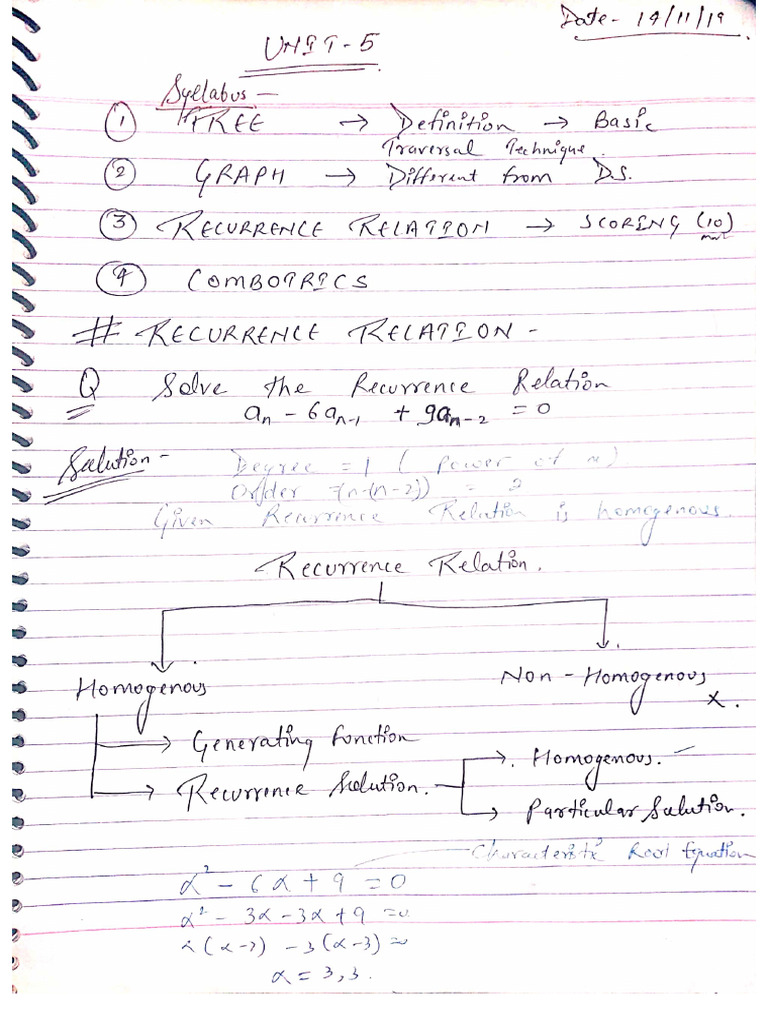 Date - 14/11/19
UNIT-5
Syllabus -
① TREE → Definition → Basic
Traversal Technique.
② GRAPH → Different from D.S.
③ RECURRENCE RELATION → SCORING (10)
④ COMBOTRICS
# RECURRENCE RELATION -
Q Solve the Recurrence Relation
aₙ - 6aₙ₋₁ + 9aₙ₋₂ = 0
Solution -
Degree = 1 ( Power of n)
Order =(n-(n-2)) = 2
Given Recurrence Relation is homogenous.
Recurrence Relation.
Homogenous Non-Homogenous
x.
→ Generating function
→ Recurrence Solution. →. Homogenous.
→ Particular Solution.
Characteristic Root Equation
α² - 6α + 9 = 0
α² - 3α - 3α + 9 = 0
α(α-3) - 3(α-3) = 0
α = 3,3.